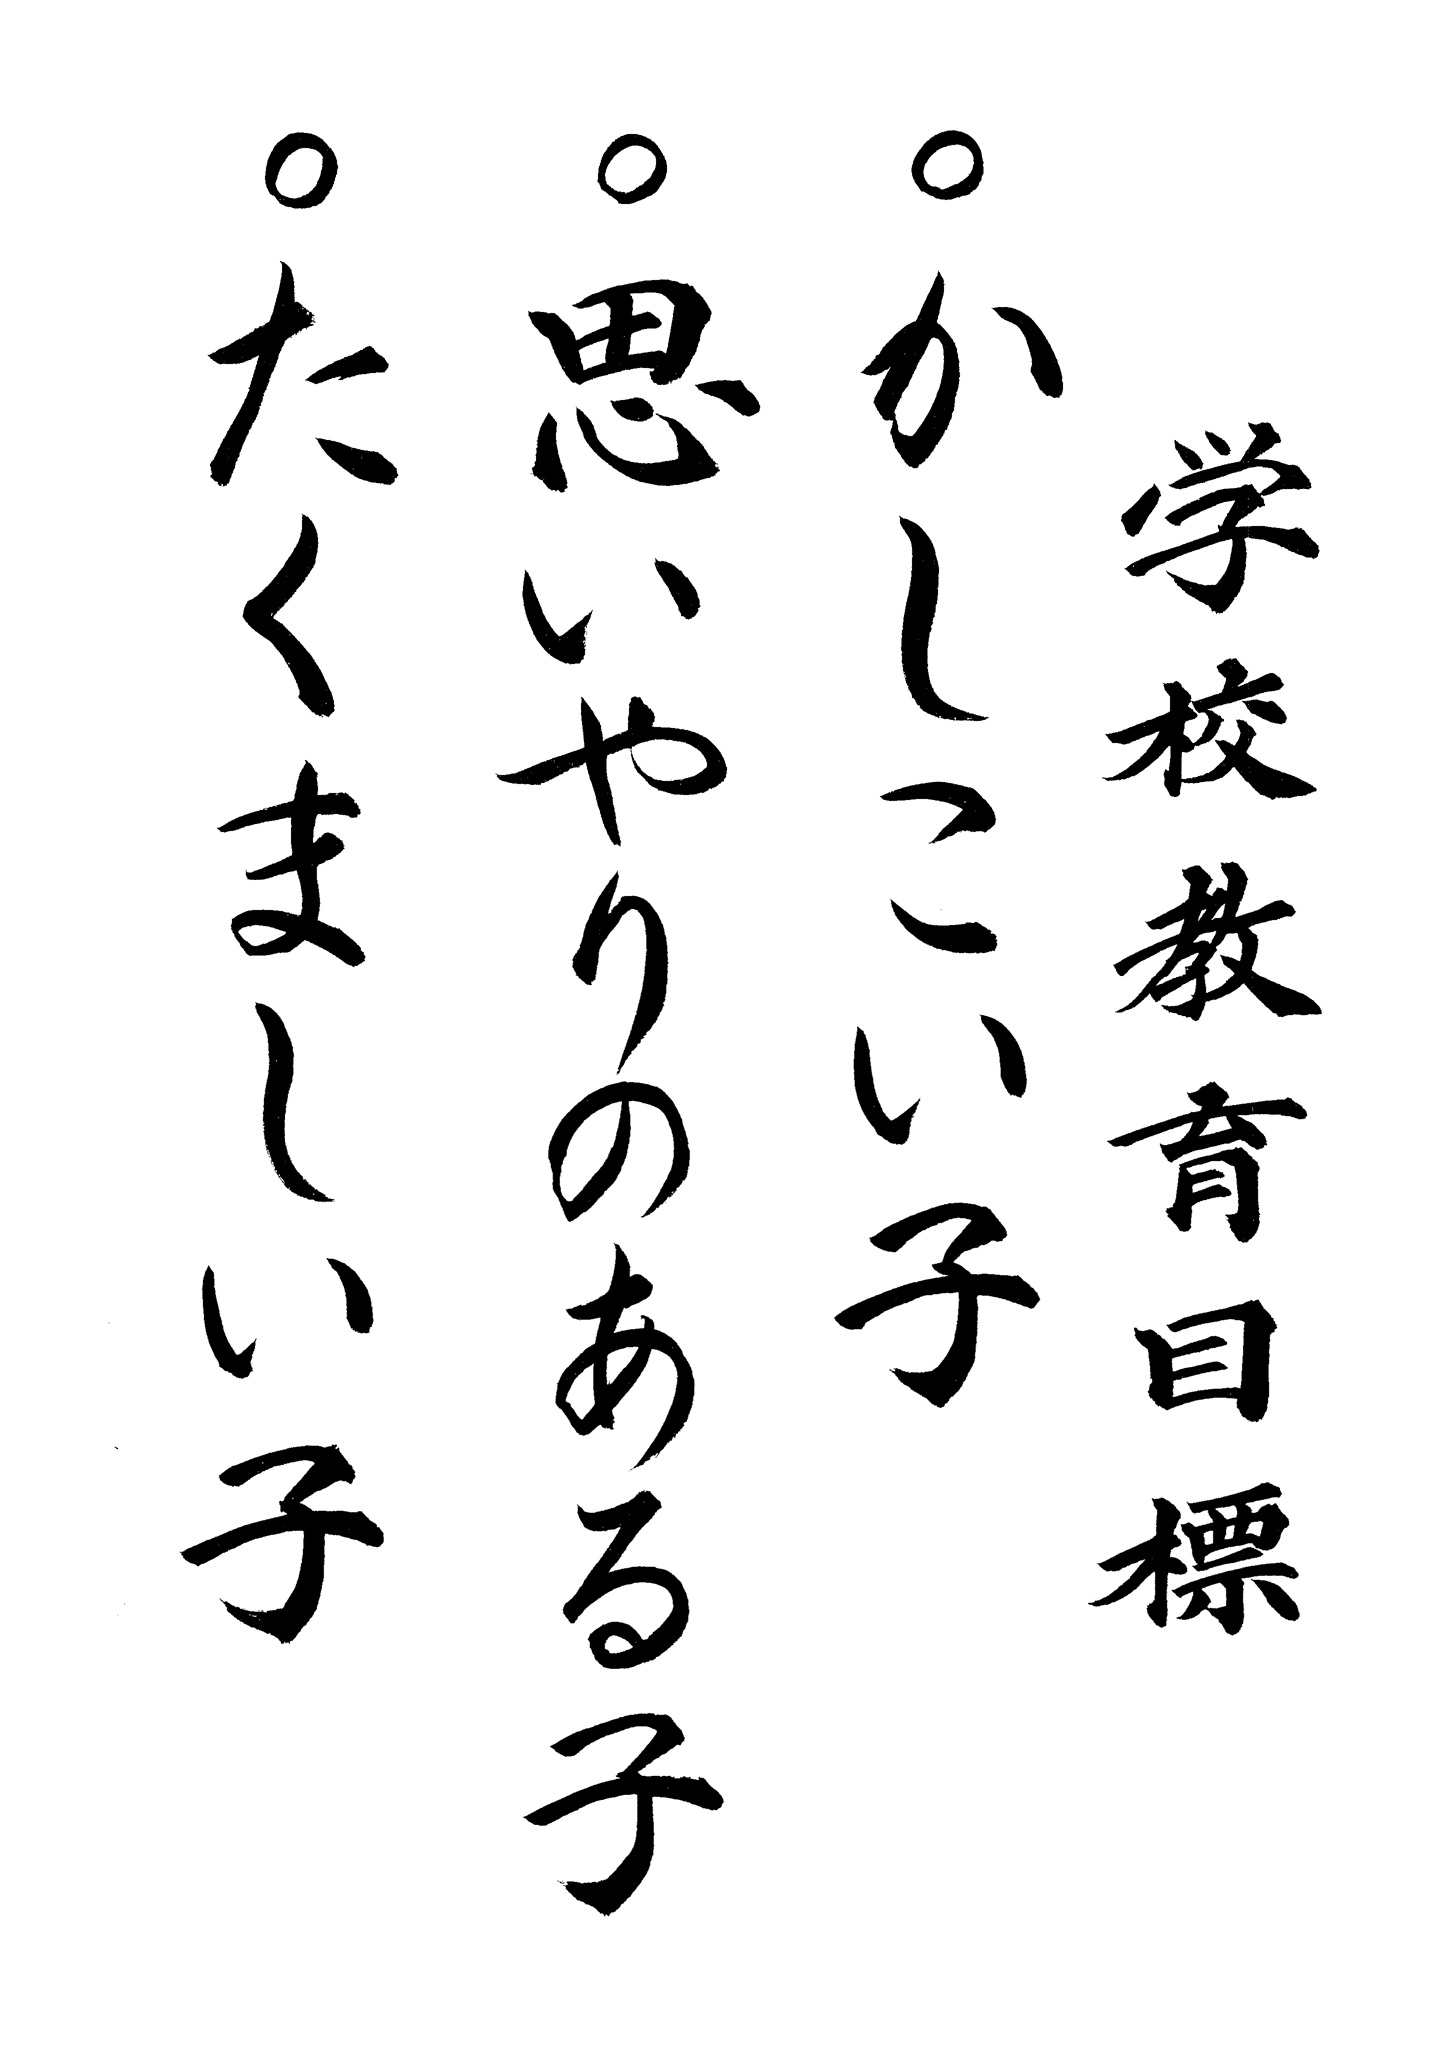 学校教育目標
○かしこい子
○思いやりのある子
○たくましい子